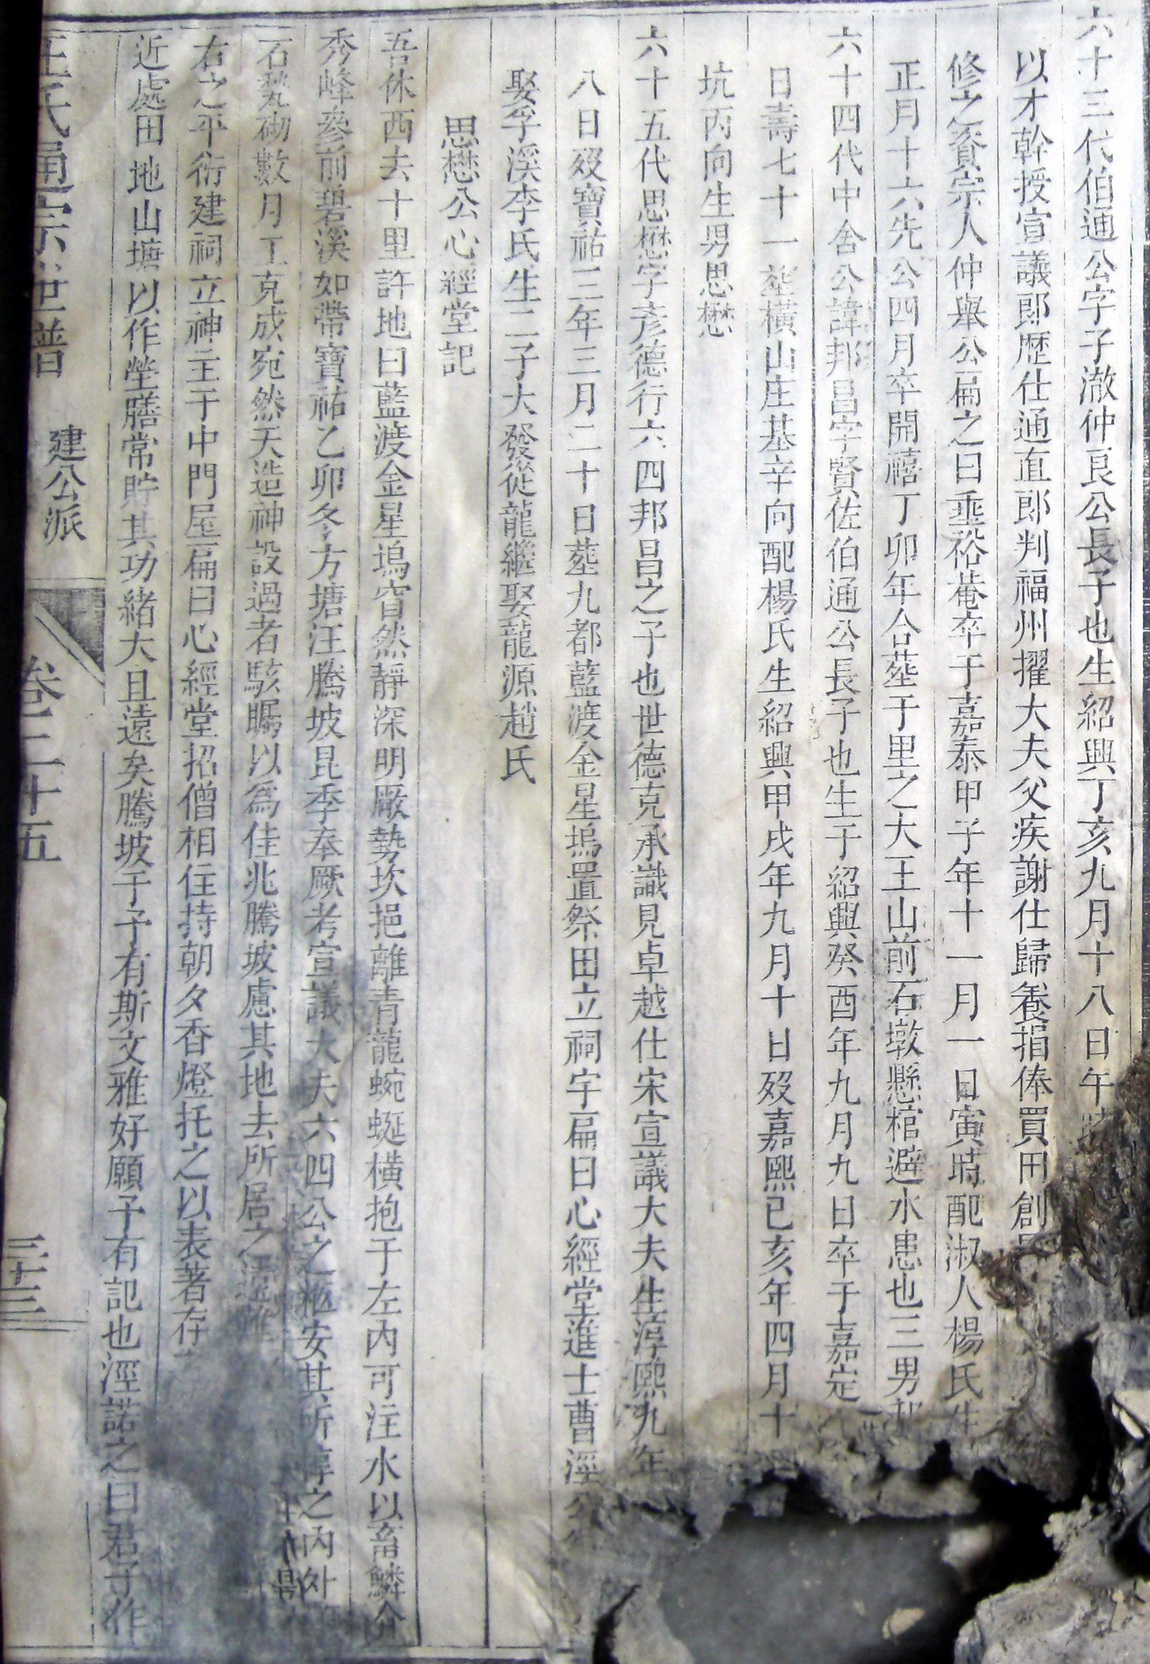 六十三代伯通公字子澈仲良公長子也生紹興丁亥九月十八日午時
以才幹授宣議郎歷仕通直郎判福州擢大夫父疾謝仕歸養捐俸買田創
修之資宗人仲舉公扁之曰垂裕菴卒于嘉泰甲子年十一月一日寅時配淑人楊氏生
正月十六先公四月卒開禧丁卯年合塟于里之大王山前石墩懸棺避水患也三男邦
六十四代中舍公諱邦昌字賢佐伯通公長子也生于紹興癸酉年九月九日卒于嘉定
日壽七十一塟橫山庄基辛向配楊氏生紹興甲戌年九月十日歿嘉熙己亥年四月十
坑丙向生男思懋
六十五代思懋字彥德行六四邦昌之子也世德克承識見卓越仕宋宣議大夫生淳熙九年
八日歿寶祐三年三月二十日塟九都藍渡金星塢置祭田立祠宇扁曰心經堂進士曹涇
娶李溪李氏生二子大發從龍繼娶龍源趙氏
思懋公心經堂記
吾休西去十里許地曰藍渡金星塢窅然靜深明厰勢坎挹離青龍蜿蜒橫抱于左內可注水以畜鱗介
秀峰叅前碧溪如帶寶祐乙卯冬方塘汪騰坡昆季奉厥考宣議大夫六四公之柩安其所厚之內外
石甃砌數月工克成宛然天造神設過者駭矚以爲佳兆騰坡慮其地去所居之
右之平衍建祠立神主于中門屋扁曰心經堂招僧相住持朝夕香燈托之以表著存
近處田地山塘以作塋膳常貯其功緒大且遠矣騰坡于予有斯文雅好願予有記也涇諾之曰君子作
汪氏通宗世譜
建公派
卷二十五
三十三